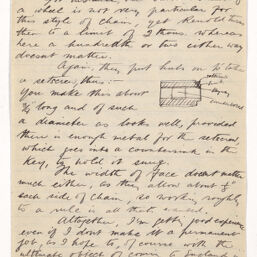 a wheel is not very particular for
this style of chain, yet Renold turn
them to a limit of 2 thous. whereas
here a hundredth or two either way
doesn't matter.
Again, they put hubs on to take
a setscrew, thus:-
You make this about
long and of such
a diameter as looks well, provided
there is enough metal for the setscrew
which goes into a countersink in the
Key, to hold it snug.
The width of face doesn't matter
much either, as they allow about
each side of chain, so working roughly
to a rule is all that's
Altogether, I'm gettg good experience
even if I don't make it a permanent
job, as I hope to, of course with the
ultimate object of coming to England